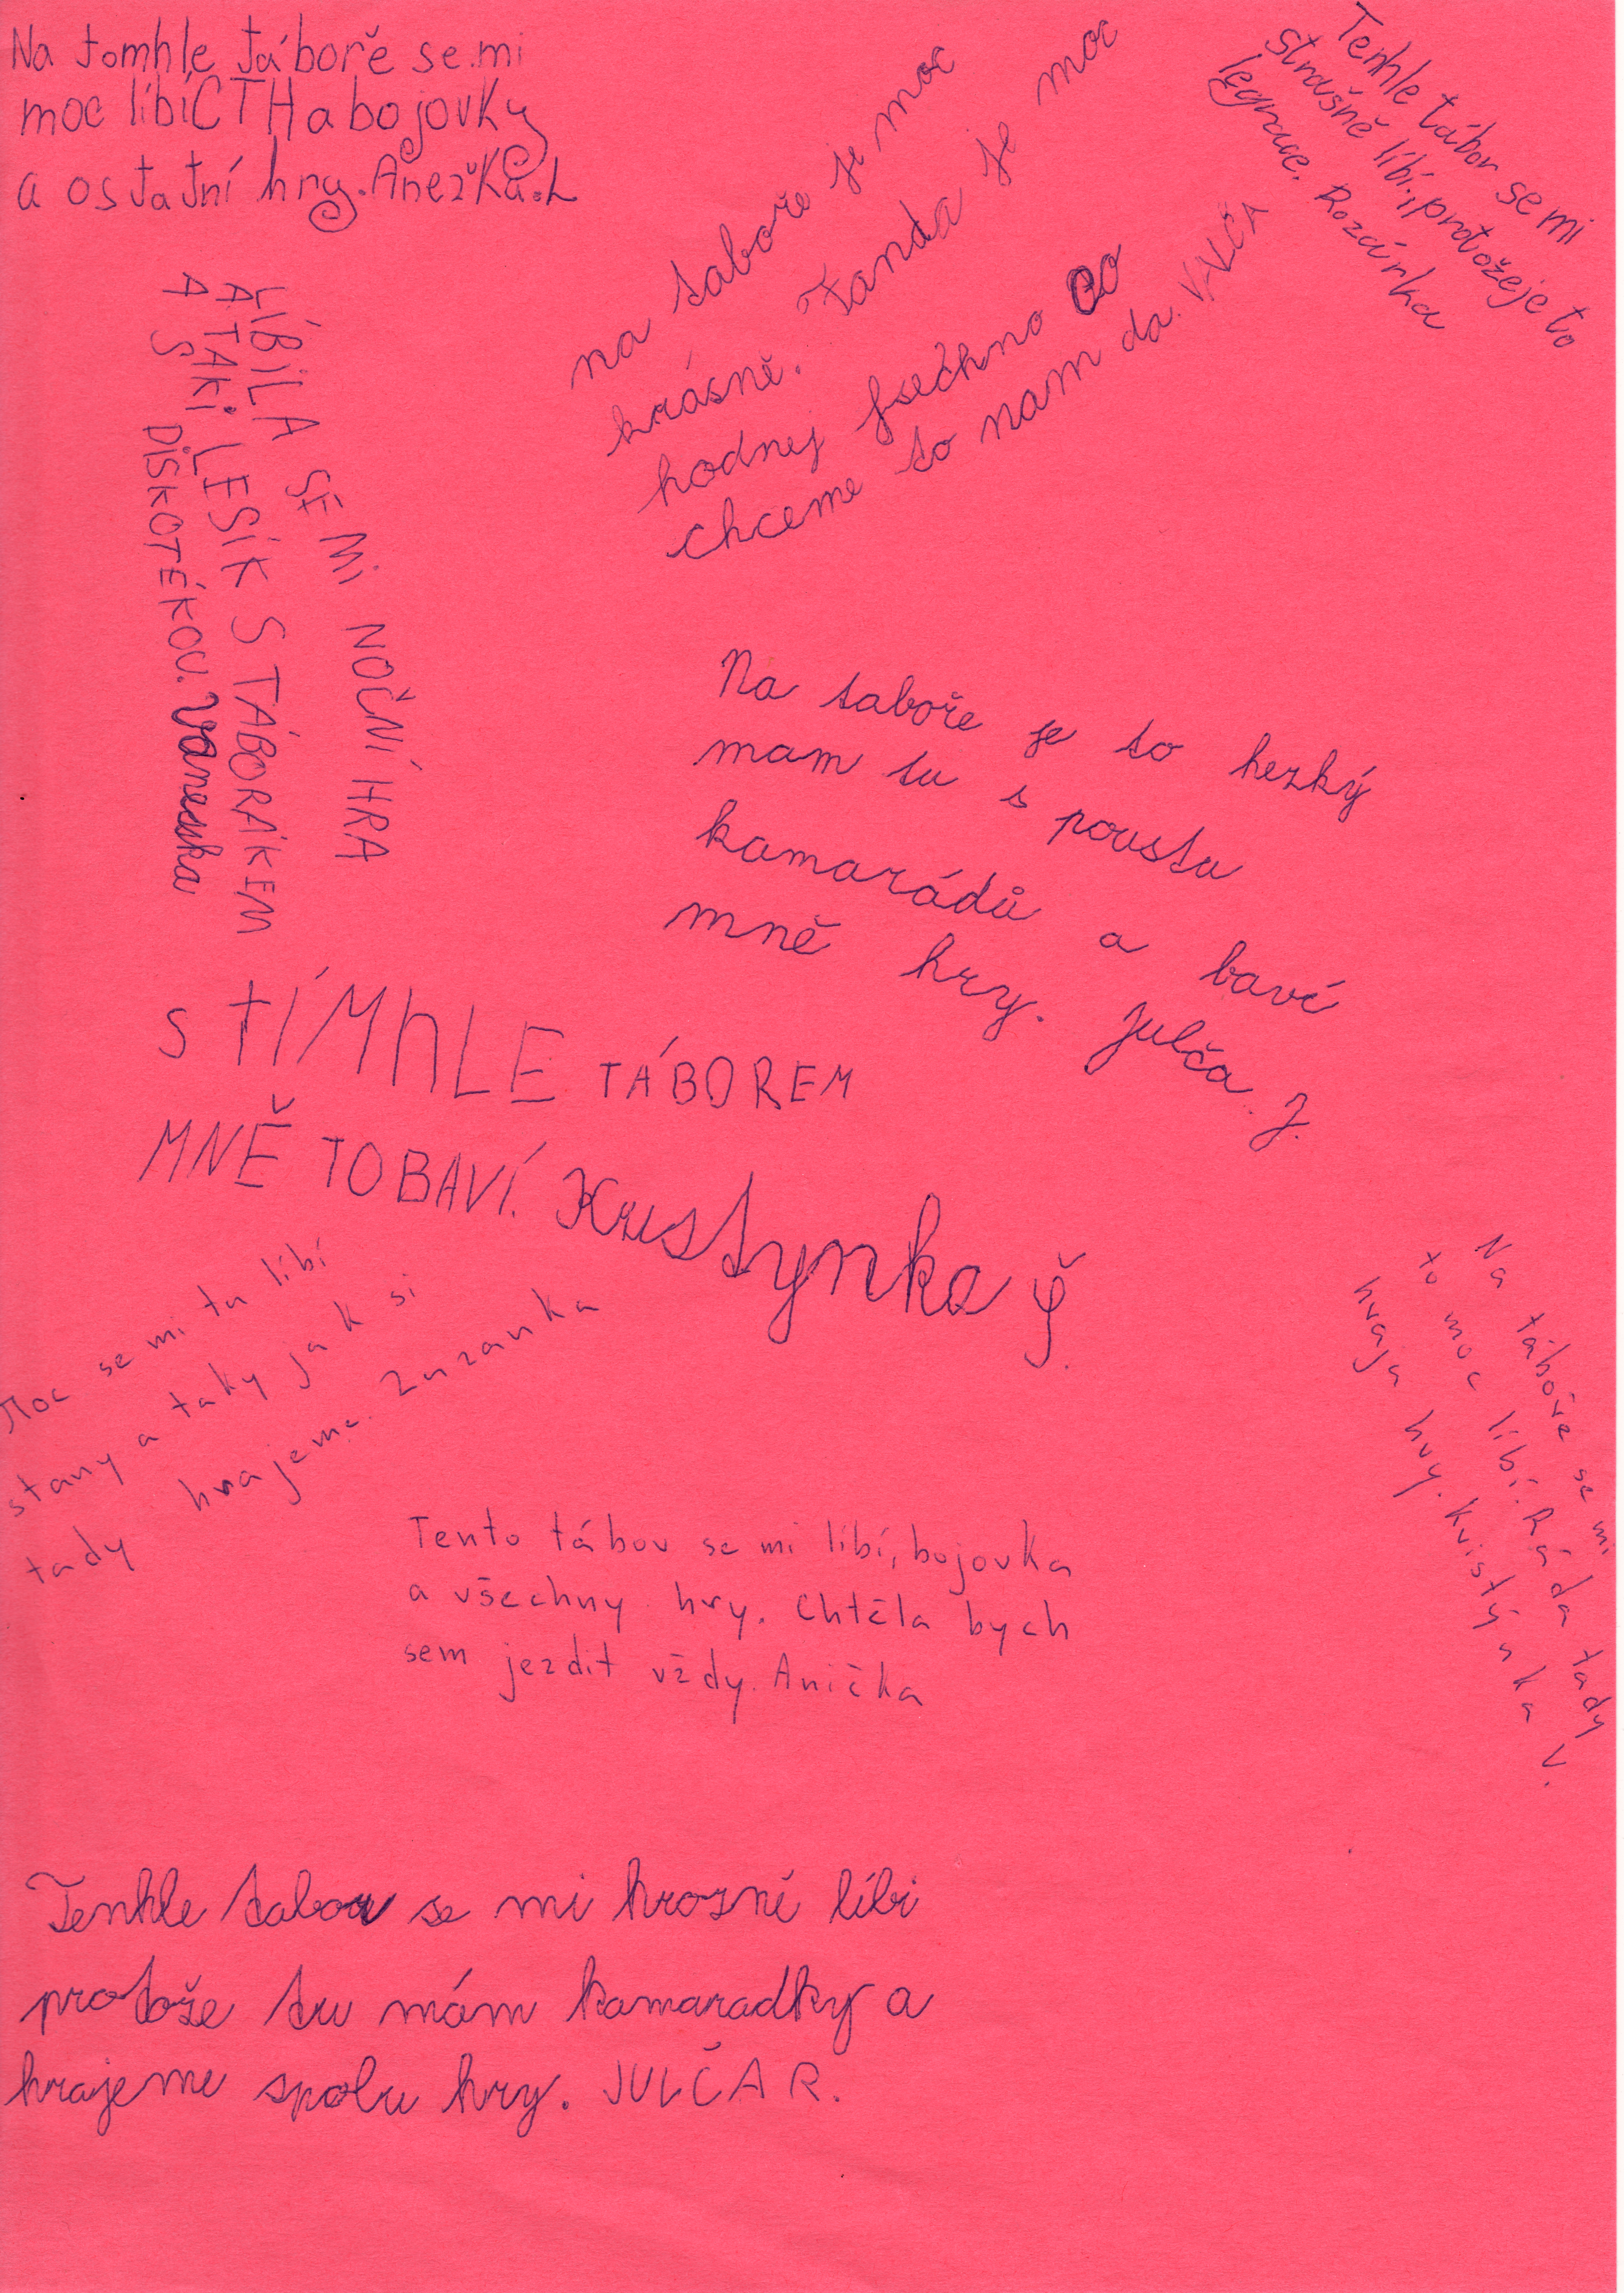 Na tomhle táboře se mi
moc líbí CTH a bojovky
a ostatní hry. Anežka.L
na taboře je moc
krásně. Fanda je moc
hodnej fsechno co
chceme to nam da. VALČA
Tenhle tábor se mi
strašně líbí, protože je to
legrace. Rozárka
LÍBILA SE MI NOČNÍ HRA
A TAKI LESÍK S TÁBORÁKEM
A S DISKOTÉKOU. Vaneska
Na taboře je to hezký
mam tu s poustu
kamarádů a baví
mně hry. Julča J.
S TÍMhLE TÁBOREM
MNĚ TO BAVÍ. Kristynka Š.
Moc se mi tu líbí
stany a taky jak si
tady hrajeme. Zuzanka
Na táboře se mi
to moc líbí. Ráda tady
hraju hry. Kristýnka V.
Tento tábor se mi líbí, bojovka
a všechny hry. Chtěla bych
sem jezdit vždy. Anička
Tenhle tabor se mi hrozně líbi
protože tu mám kamaradky a
hrajeme spolu hry. JULČA R.